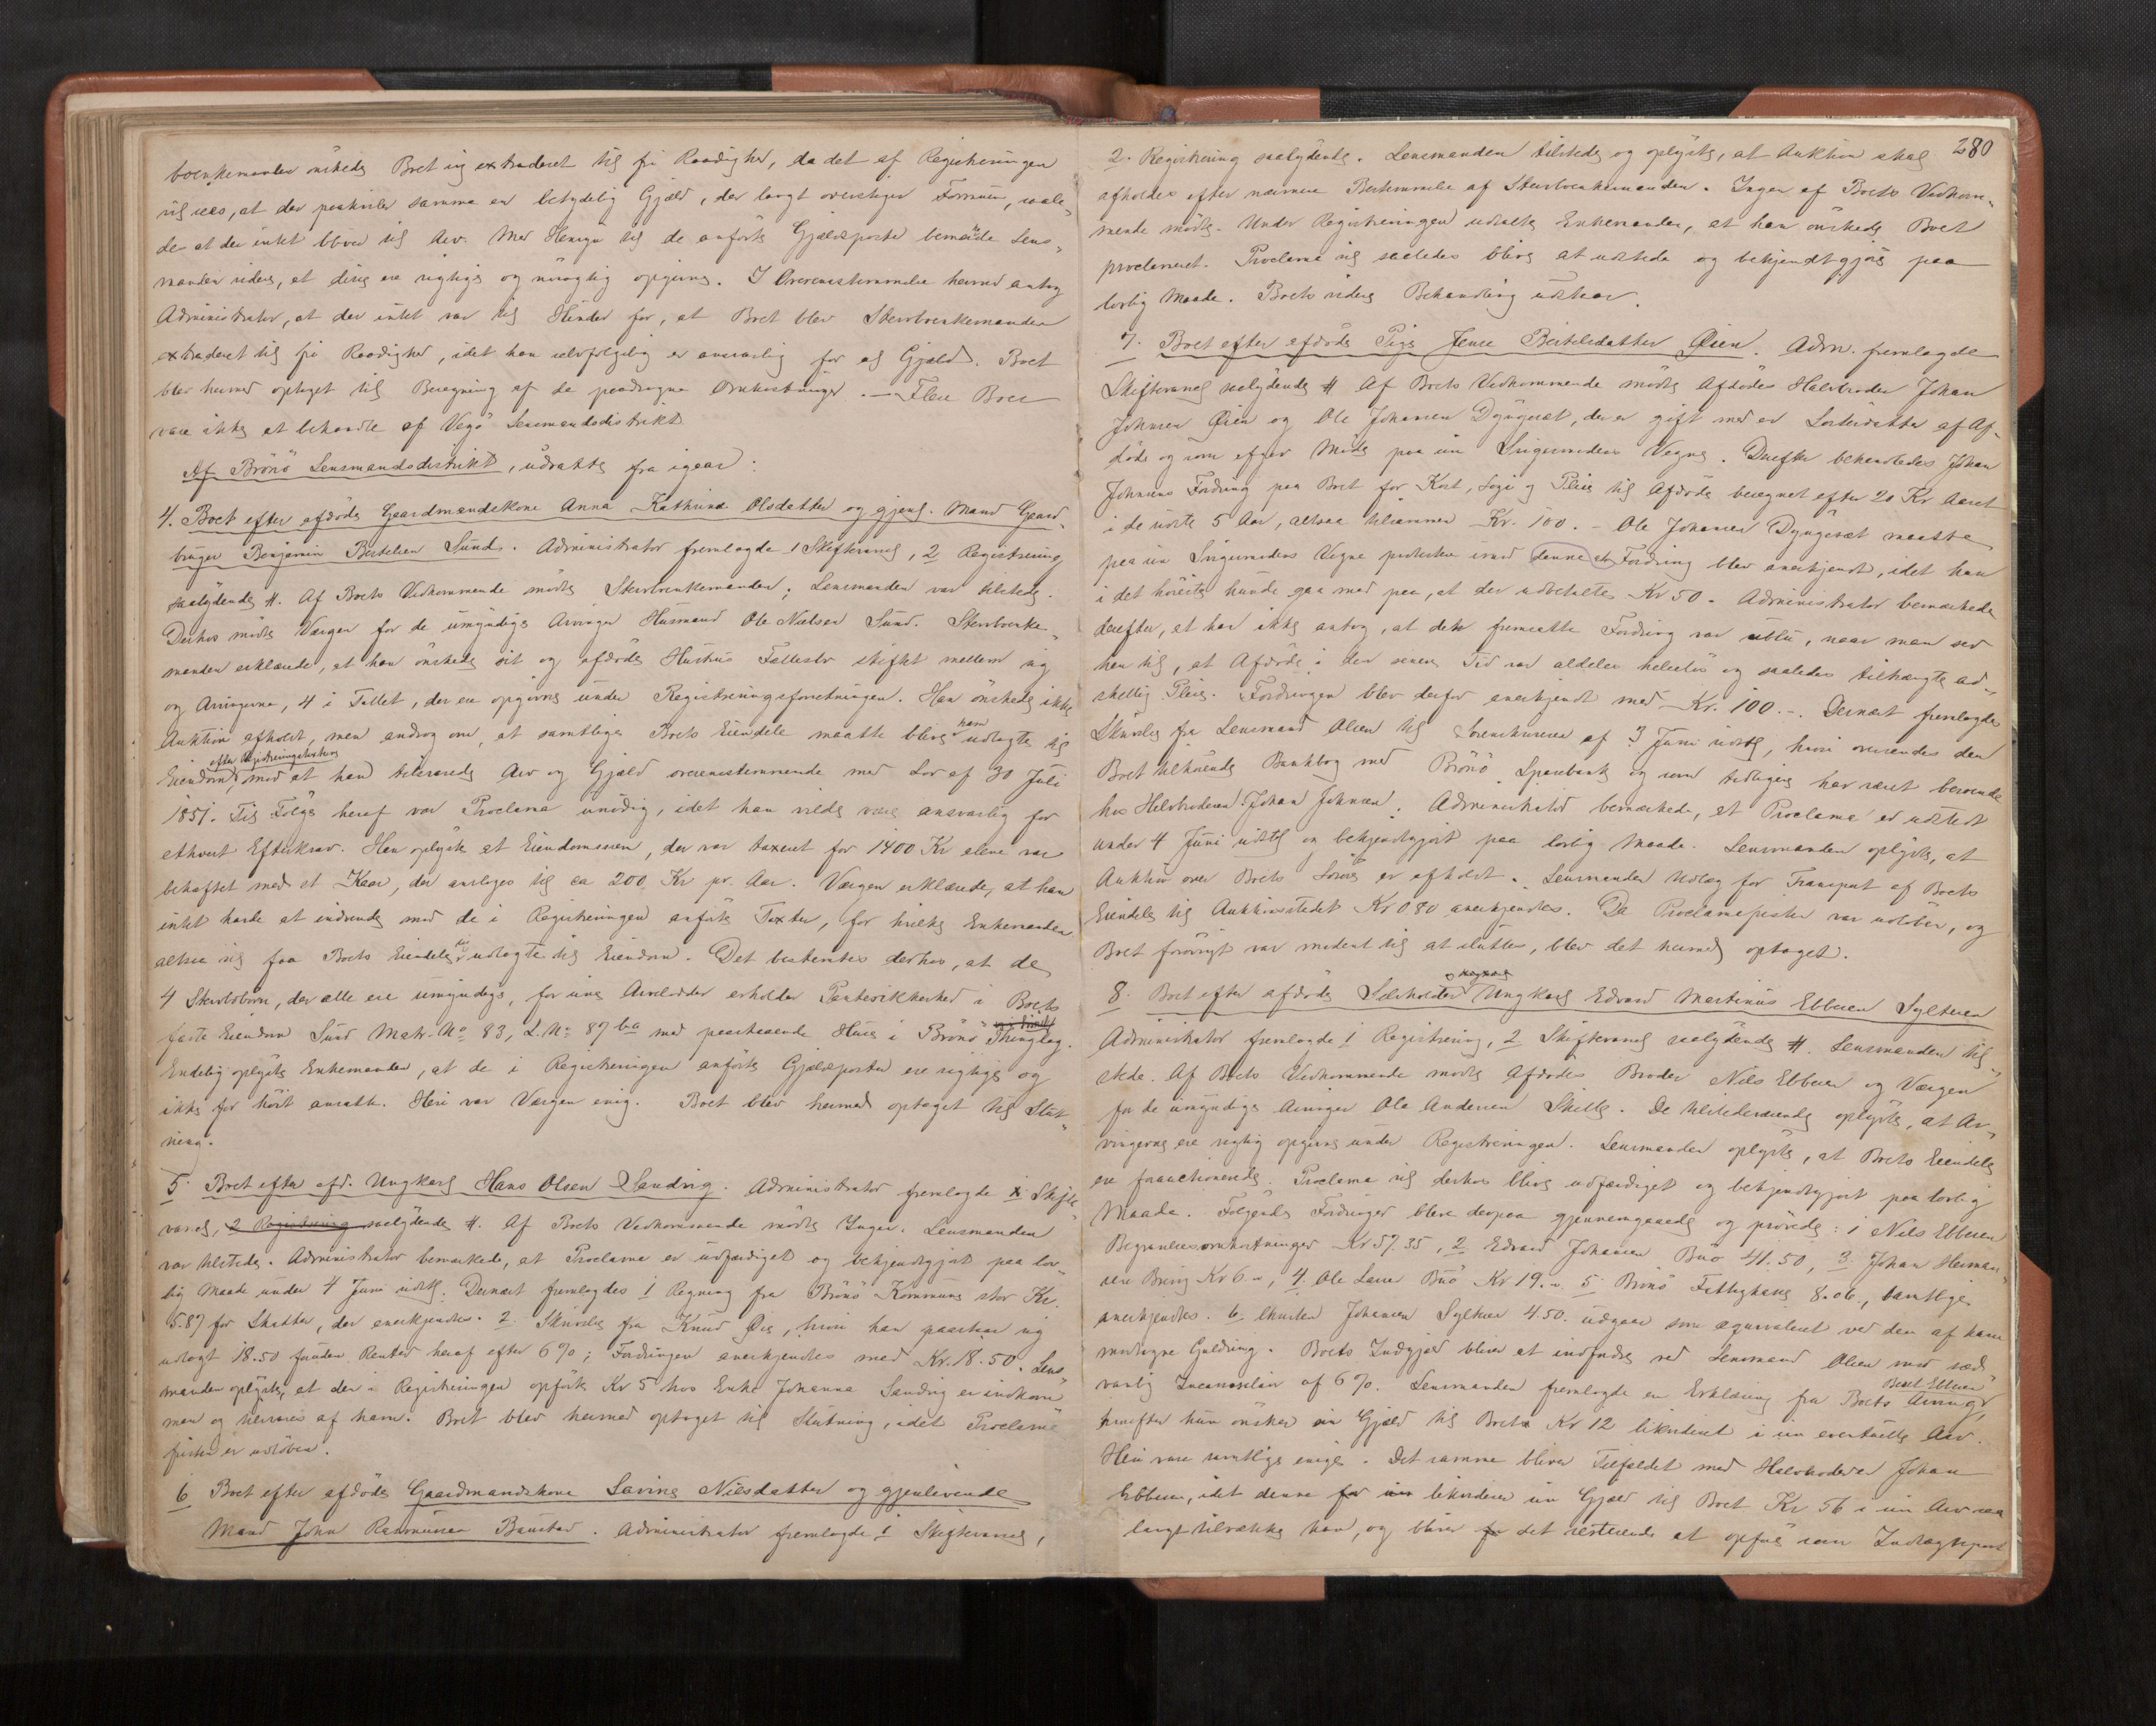 boenkemanden önskede Boet sig extraderet til fri Raadighed, da det af Registreringen
vil sees, at der paahviler samme en betydelig Gjæld, der langt overstiger Formuen, saale-
de at der intet bliver til Arv. Med Hensyn til de anförte Gjældsposter bemærkede Lens-
manden videre, at disse ere rigtige og nöiagtig opgivne. I Overensstemmelse hermed antog
Administrator, at der intet var til Hinder for, at Boet blev Stervboenkemanden
extraderet til fri Raadighed, idet han selvfølgelig er ansvarlig for al Gjæld. Boet
blev hermed optaget til Beregning af de paadragne Omkostninger. — Flere Boer
vare ikke at behandle af Vegö Lensmandsdistrikt.
Af Brönö Lensmandsdistrikt, udsatte fra igaar:
4. Boet efter afdöde Gaardmandskone Anna Kathrina Olsdatter og gjenl. Mand Gaard-
bruger Benjamin Bertelsen Sund. Administrator fremlagde 1 Skiftevarsel, 2 Registrering
saalydende #. Af Boets Vedkommende mödte Stervboenkemanden; Lensmanden var tilstede.
Derhos mödte Værgen for de umyndige Arvinger Husmand Ole Nielsen Sund. Stervboenke-
manden erklærede, at han önskede sit og afdöde Hustrus Fællesbo skiftet mellem sig
og Arvingerne, 4 i Tallet, der ere opgivne under Registreringsforretningen. Han önskede ikke
Auktion afholdt, men androg om, at samtlige Boets Eiendele maatte blive ham udlagte til
Eiendom efter Registreringstaxten, mod at han tilsvarede Arv og Gjæld overensstemmende med Lov af 30 Juli
1851. Til Følge heraf var Proclama unödig, idet han vilde være ansvarlig for
ethvert Efterkrav. Han oplyste at Eiendommen, der var taxeret for 1400 Kr alene var
behæftet med et Kaar, der ansloges til ca 200 Kr pr. Aar. Værgen erklærede, at han
intet havde at indvende mod de i Registreringen anförte Taxter, for hvilke Enkemanden
altsaa vil faa Boets Eiendele udlagte til Eiendom. Det bestemtes derhos, at de
4 Stervbobörn, der alle ere umyndige, for sine Arvelodder erholder Pantesikkerhed i Boets
faste Eiendom Sund Matr. No 83, L. No 87 ba med paastaaende Huse i Brönö Thinglag.
Endelig oplyste Enkemanden, at de i Registreringen anförte Gjældsposter ere rigtige og
ikke for höit ansatte. Heri var Værgen enig. Boet blev hermed optaget til Slut-
ning.
5. Boet efter afd. Ungkarl Hans Olsen Sandvig. Administrator fremlagde 1 Skifte
varsel, 2 Registrering saalydende #. Af Boets Vedkommende mödte Ingen. Lensmanden
var tilstede. Administrator bemærkede, at Proclama er udfærdiget og bekjendtgjort paa lov-
lig Maade under 4 Juni sidstl. Dernæst fremlagdes 1 Regning fra Brönö Kommune stor Kr.
5.87 for Skatter, der anerkjendtes. 2 Skrivelse fra Knud Øie, hvori han paastaar sig
udlagt 18.50 foruden Renter heraf efter 6 %; Fordringen anerkjendtes med Kr. 18.50. Lens-
manden oplyste, at den i Registreringen opførte Kr 5 hos Enke Johanna Sandvig er indkom-
men og tilsvares af ham. Boet blev hermed optaget til Slutning, idet Proclama
fristen er udlöben.
6 Boet efter afdöde Gaardmandskone Savine Nilsdatter og gjenlevende
Mand John Rasmussen Baustad. Administrator fremlagde 1 Skiftevarsel,
280
2. Registrering saalydende. Lensmanden tilstede og oplyste, at Auktion skal
afholdes efter nærmere Bestemmelse af Stervboenkemanden. Ingen af Boets Vedkom-
mende mödte. Under Registreringen udtalte Enkemanden, at han önskede Boet
proclameret. Proclama vil saaledes blive at udstede og bekjendtgjöre paa
lovlig Maade. Boets videre Behandling udstaar.
7. Boet efter afdöde Pige Jense Bertelsdatter Øien. Adm. fremlagde
Skiftevarsel saalydende # Af Boets Vedkommende mödte Afdödes Halvbroder Johan
Johnsen Øien og Ole Johansen Dyngeset, der er gift med en Søsterdatter af Af-
döde og som efter Möde paa sin Svigermoders Vegne. Derefter behandledes Johan
Johnsens Fordring paa Boet for Kost, Logi og Pleie til Afdöde beregnet efter 20 Kr Aaret
i de sidste 5 Aar, altsaa tilsammen Kr. 100. - Ole Johansen Dyngeset maatte
paa sin Svigermoders Vegne protestere imod denne at Fordring blev anerkjendt, idet han
i det höieste kunde gaa med paa, at der udbetaltes Kr 50. Administrator bemærkede
derefter, at han ikke antog, at den fremsatte Fordring var ublu, naar man ser
hen til, at Afdöde i den senere Tid var aldeles helselös og saaledes tiltrængte ad-
skillig Pleie. Fordringen blev derfor anerkjendt med Kr. 100.-. Dernæst fremlagdes
Skrivelse fra Lensmand Olsen til Sorenskriveren af 3 Juni sidstl, hvori oversendes den
Boet tilhörende Bankbog med Brönö Sparebank og som tidligere har været beroende
hos Halvbroderen Johan Johnsen. Administrator bemærkede, at Proclama er udstedt
under 4 Juni sidstl og bekjendtgjort paa lovlig Maade. Lensmanden oplyste, at
Auktion over Boets Lösöre er afholdt. Lensmanden Udlæg for Transport af Boets
Eiendele til Auktionsstedet Kr 0.80 anerkjendtes. Da Proclamafristen var udlöben, og
Boet forövrigt var modent til at sluttes, blev det hermed optaget.
8. Boet efter afdöde Selveier Ungkarl Edvard Martinus Ebbesen Sylteren
Administrator fremlagde 1 Registrering, 2 Skiftevarsel saalydende #. Lensmanden til-
stede. Af Boets Vedkommende mödte Afdödes Broder Nils Ebbesen og Værgen
for de umyndige Arvinger Ole Andersen Skille. De tilstedeværende oplyste, at Ar-
vingerne ere rigtig opgivne under Registreringen. Lensmanden oplyste, at Boets Eiendele
ere frauctionerede. Proclama vil derhos blive udfærdiget og bekjendtgjort paa lovlig
Maade. Følgende Fordringer bleve derpaa gjennemgaaede og prövede: 1 Nils Ebbesen
Begravelsesomkostninger Kr 57.35, 2 Edvard Johansen Buö 41.50, 3 Johan Herman-
sen Kr 6 -, 4. Ole Larsen Buö Kr 19. -. 5 Brönö Fattigkasse 8.06., samtlige
anerkjendtes. 6 Johansen Sylteren 4.50. udgaar som æquivaleret ved den af ham
modtagne Gulring. Boets Indgjæld bliver at inddrive ved Lensmand Olsen mod sæd-
vanlig Incassosalær af 6 %. Lensmanden fremlagde en Erklæring fra Boets Arving Ebbesen
hvorefter hun önsker sin Gjæld til Boet Kr 12 likvideret i sin eventuelle Arv.
Heri vare samtlige enige. Det samme bliver Tilfældet med Halvbroderen Johan
Ebbesen, idet denne likviderer sin Gjæld til Boet Kr 56 i sin Arv saa
langt tilrække kan, og bliver det resterende at opføre som Indtægtspost